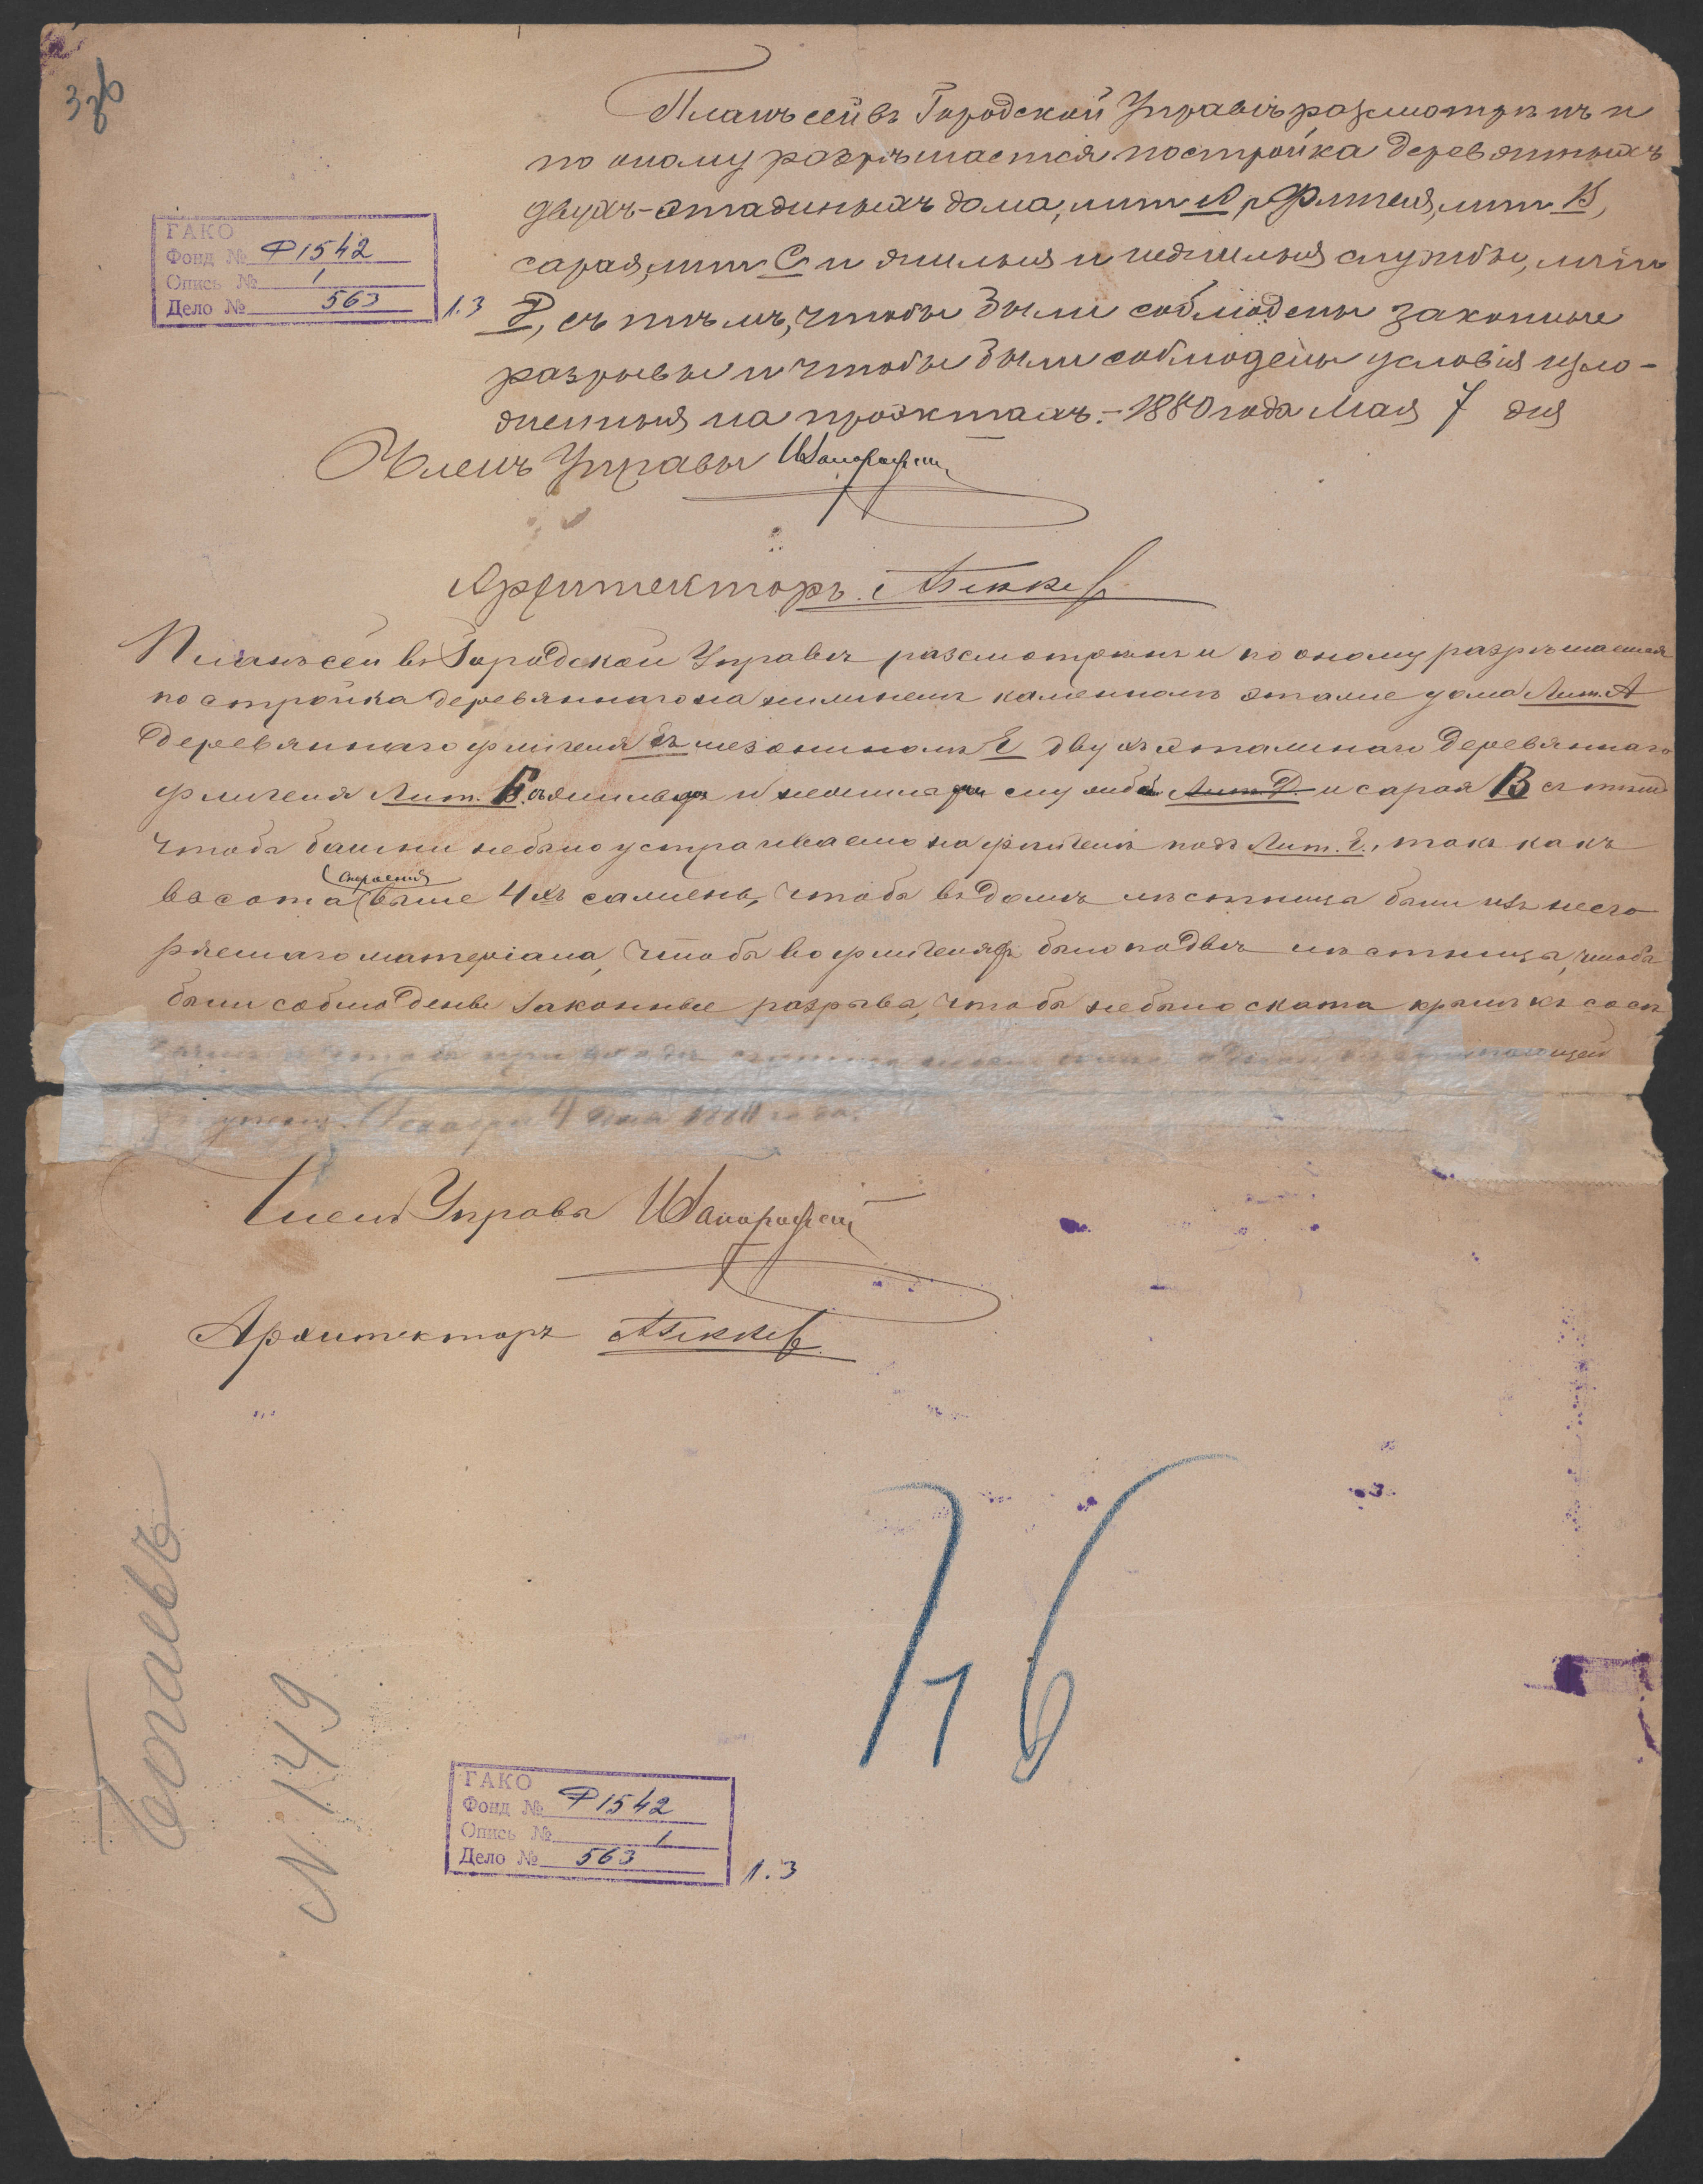 376
Планъ сей въ Городской Управѣ разсмотрѣнъ и
по оному разрѣшается постройка деревянныхъ
двухъ-этажныхъ дома, лит А, Флигеля, лит В,
сарая, лит С и жилыя и нежилыя службы, лит
D, съ тѣмъ, чтобы были соблюдены законные
разрывы и чтобы были соблюдены условія изло-
женныя на проэктахъ. – 1880 года Мая 7 дня
Членъ Управы
Архитекторъ
ГАКО
Фонд № Ф1542
Опись № 1
Дело № 563
л.3
Планъ сей въ Городской Управѣ разсмотрѣнъ и по оному разрѣшается
постройка деревяннаго на жиломъ каменномъ этаже дома Лит. А
деревяннаго флигеля съ мезониномъ Г двухъ этажнаго деревяннаго
флигеля Лит. Б. жилыхъ и нежилыхъ службъ Лит. D. и сарая В съ тѣмъ
чтобы башни небыло устраиваемо на флигелѣ подъ Лит. Г., такъ какъ
строенія
высота выше 4хъ сажень, чтобы въ домѣ лѣстница были изъ несго
раемаго матеріала, чтобы во флигеляхъ было по двѣ лѣстницы, чтобы
были соблюдены законные разрывы, чтобы небыло ската крыши къ сосѣ
4 дня 1880 года.
Членъ Управы
Архитекторъ
N 149
176
ГАКО
Фонд № Ф1542
Опись № 1
Дело № 563
л.3